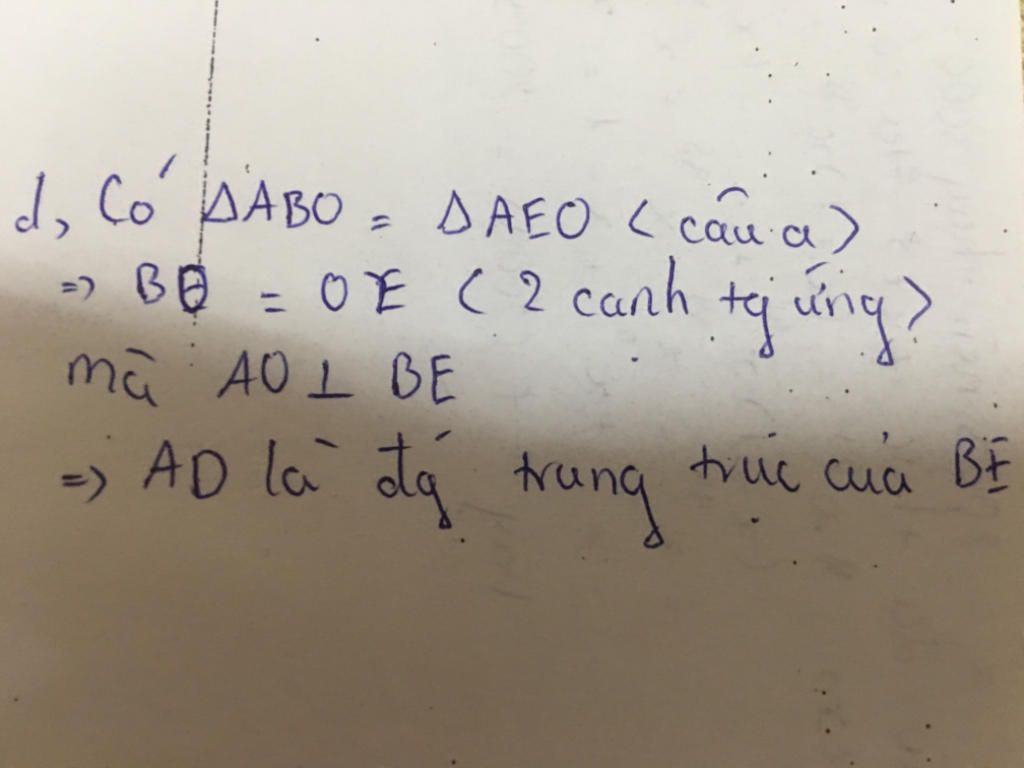 d, Có ΔABO = ΔAEO (câu a)
=> BO = OE (2 cạnh tg ứng)
mà AO ⊥ BE
=> AD là đg trung trực của BE